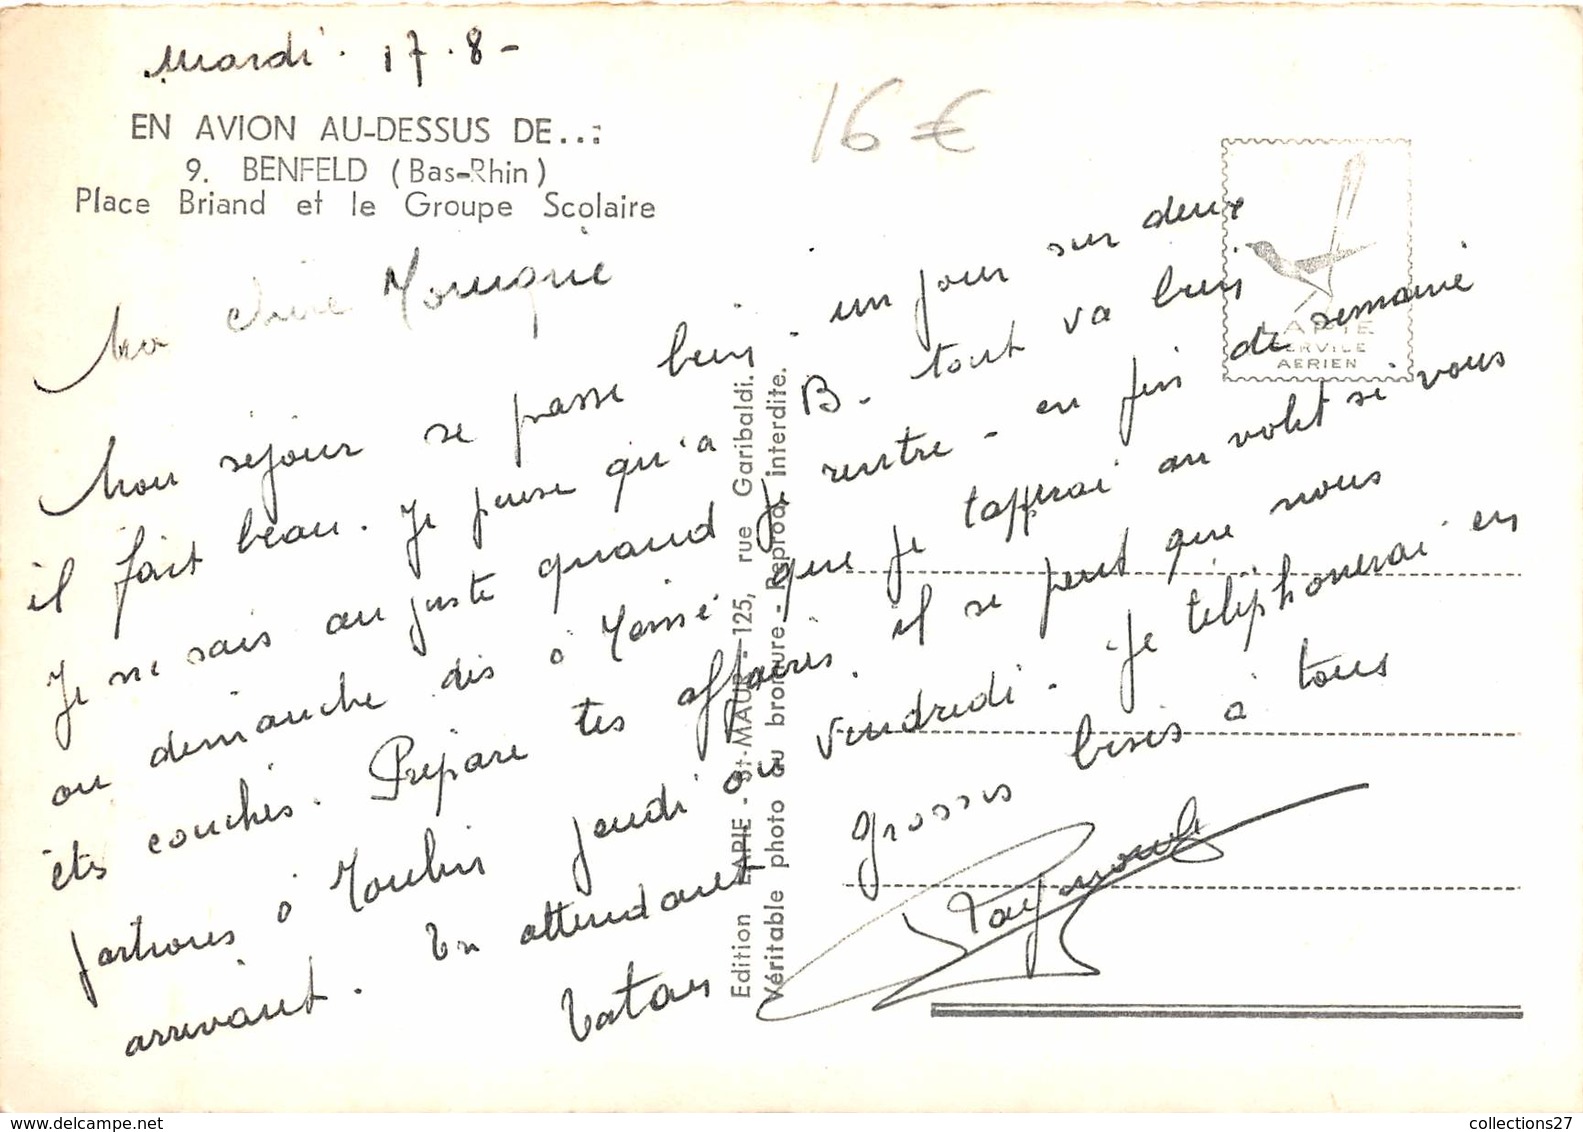 mardi. 17.8-
16 €
EN AVION AU-DESSUS DE...
9. BENFELD (Bas-Rhin)
Place Briand et le Groupe Scolaire
LAPIE
SERVICE
AERIEN
Ma chère
Mon séjour se passe bien. un jour sur deux
il fait beau. Je pense qu'à B. tout va bien
Je ne sais au juste quand je rentre - en fin de semaine
ou dimanche dis à que je taperai au volet si vous
êtes couchés. Prépare tes affaires. il se peut que nous
partions à Moulin jeudi ou vendredi. Je téléphonerai en
arrivant. En attendant grosses bises à tous
Tatan
Raymonde
Edition LAPIE - St-MAUR - 125, rue Garibaldi.
Véritable photo au bromure - Reprod. interdite.
collections27